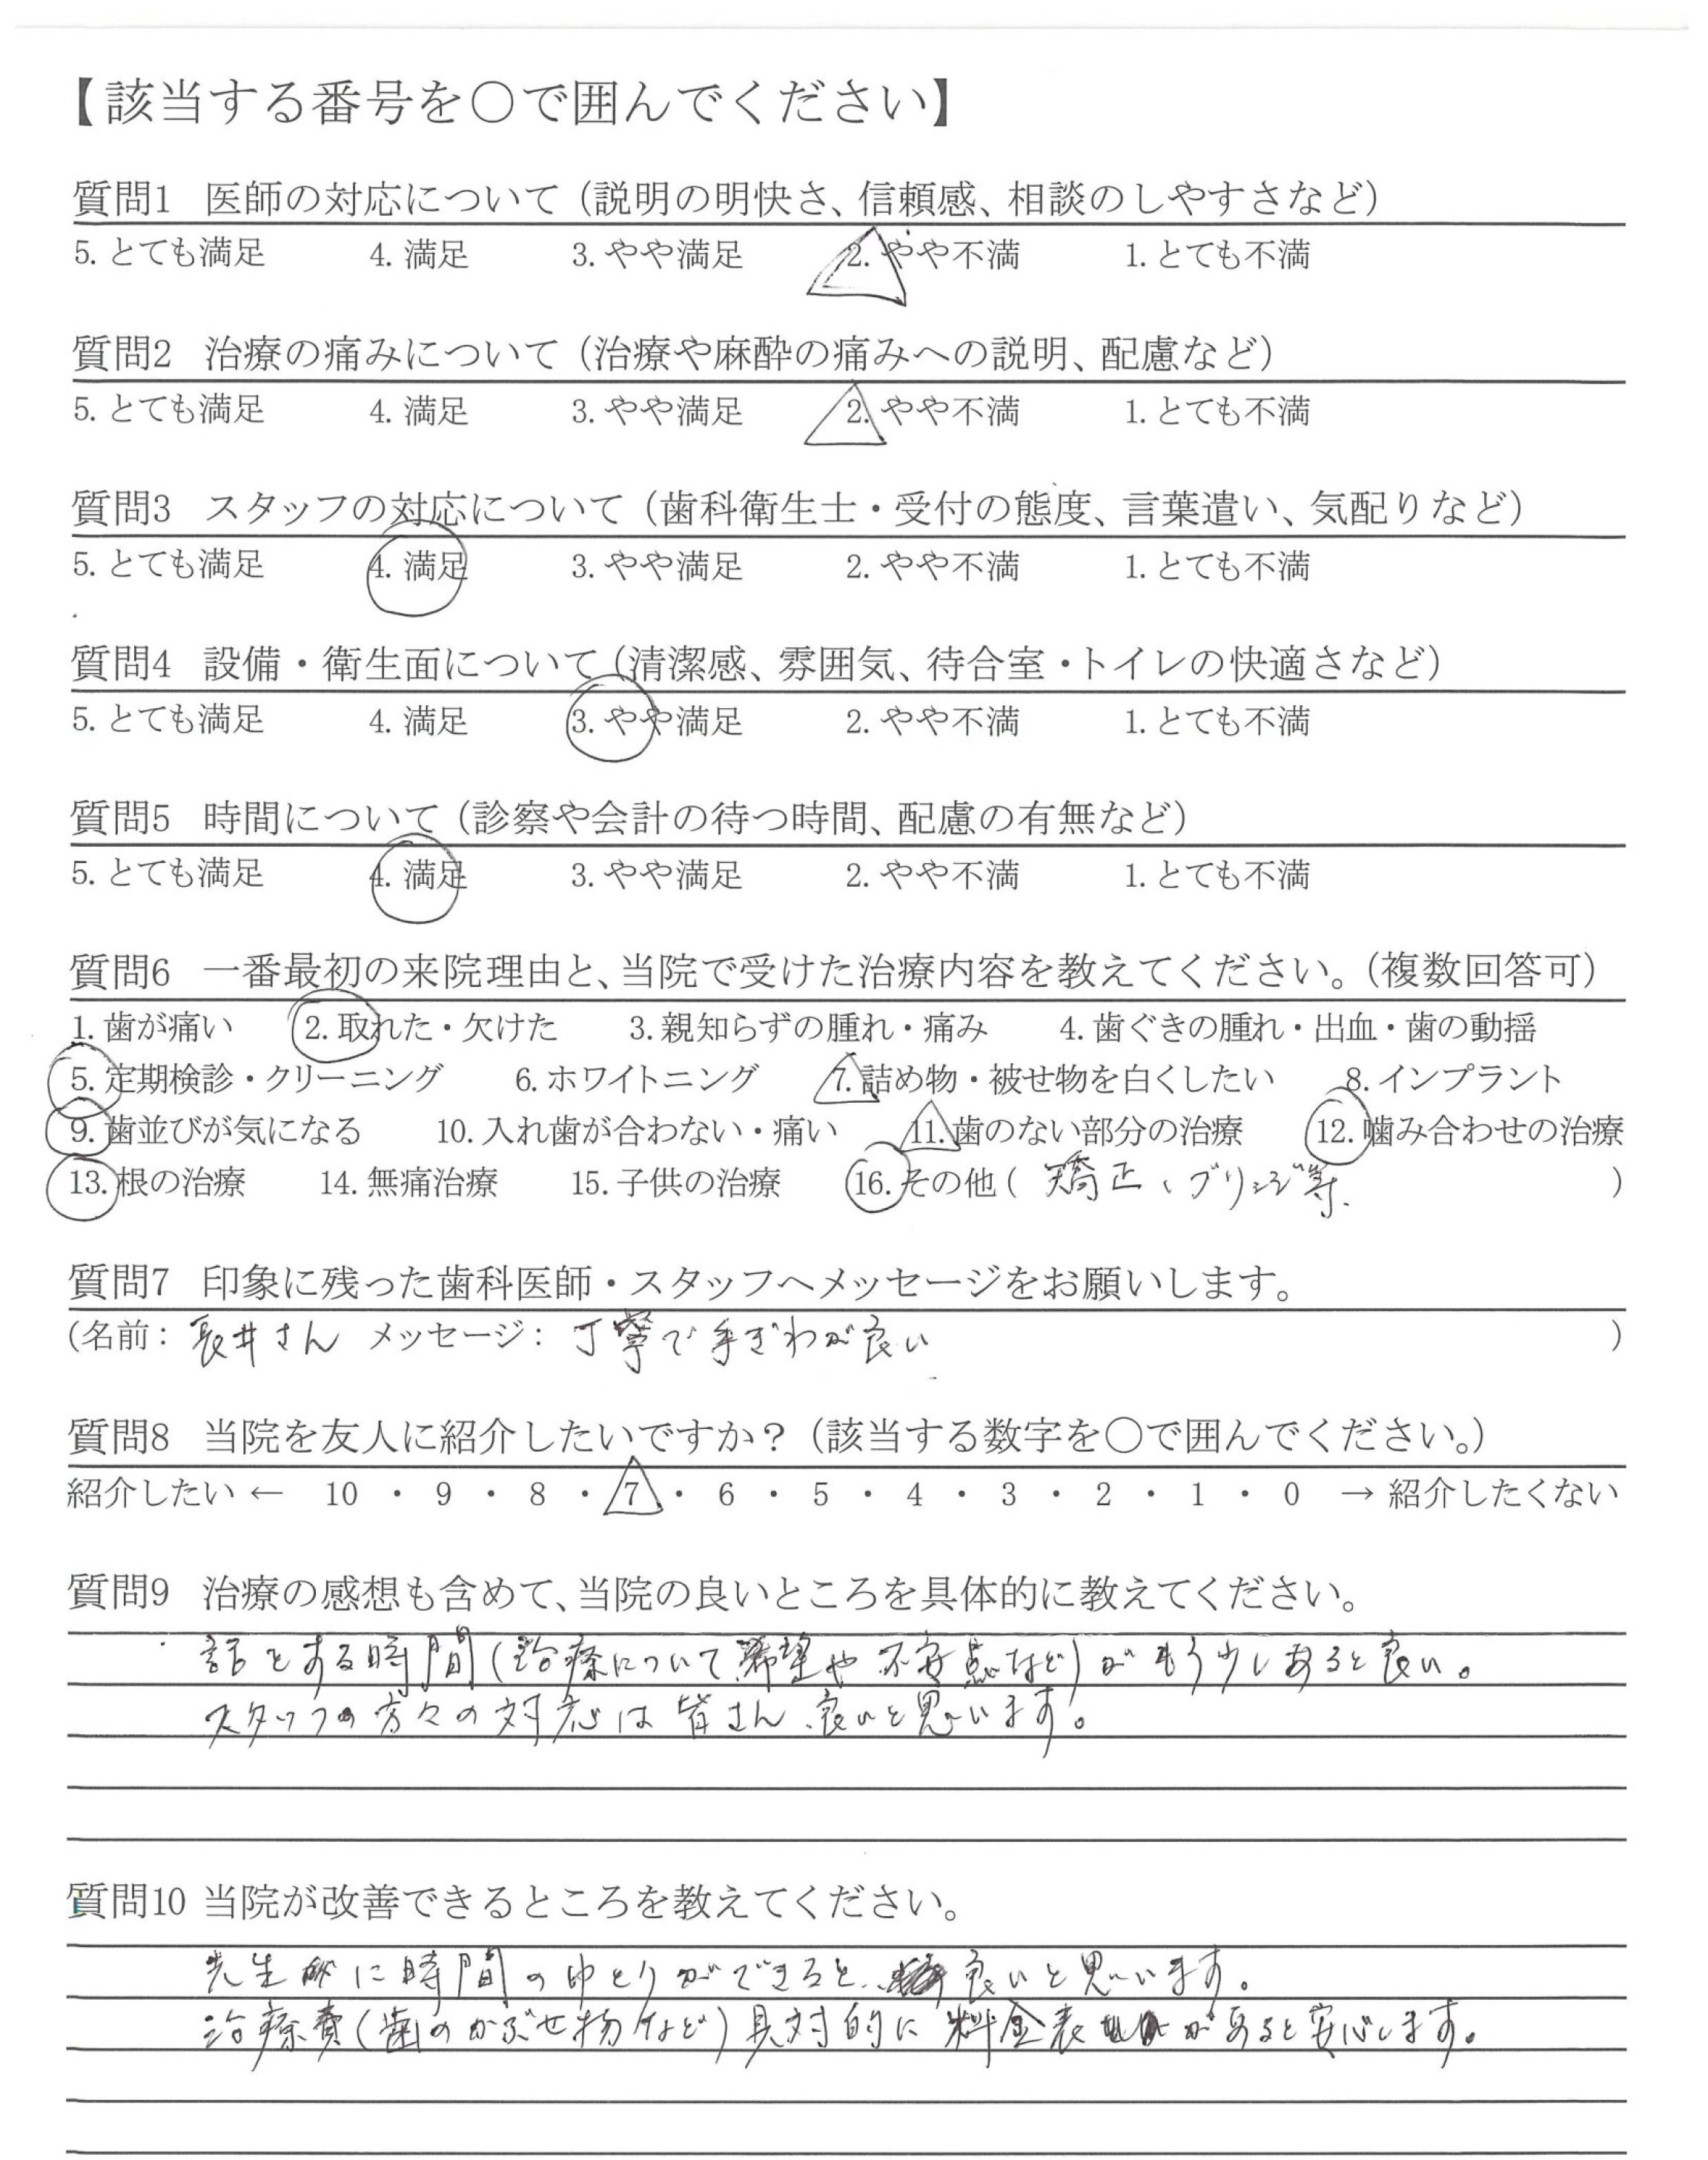 【該当する番号を○で囲んでください】
質問1 医師の対応について（説明の明快さ、信頼感、相談のしやすさなど）
5. とても満足 4. 満足 3. やや満足 2. やや不満 1. とても不満
質問2 治療の痛みについて（治療や麻酔の痛みへの説明、配慮など）
5. とても満足 4. 満足 3. やや満足 2. やや不満 1. とても不満
質問3 スタッフの対応について（歯科衛生士・受付の態度、言葉遣い、気配りなど）
5. とても満足 4. 満足 3. やや満足 2. やや不満 1. とても不満
質問4 設備・衛生面について（清潔感、雰囲気、待合室・トイレの快適さなど）
5. とても満足 4. 満足 3. やや満足 2. やや不満 1. とても不満
質問5 時間について（診察や会計の待つ時間、配慮の有無など）
5. とても満足 4. 満足 3. やや満足 2. やや不満 1. とても不満
質問6 一番最初の来院理由と、当院で受けた治療内容を教えてください。（複数回答可）
1. 歯が痛い 2. 取れた・欠けた 3. 親知らずの腫れ・痛み 4. 歯ぐきの腫れ・出血・歯の動揺
5. 定期検診・クリーニング 6. ホワイトニング 7. 詰め物・被せ物を白くしたい 8. インプラント
9. 歯並びが気になる 10. 入れ歯が合わない・痛い 11. 歯のない部分の治療 12. 噛み合わせの治療
13. 根の治療 14. 無痛治療 15. 子供の治療 16. その他（ 矯正、ブリッジ等. ）
質問7 印象に残った歯科医師・スタッフへメッセージをお願いします。
（名前： 長井さん メッセージ： 丁寧で手ぎわが良い ）
質問8 当院を友人に紹介したいですか？（該当する数字を○で囲んでください。）
紹介したい ← 10 ・ 9 ・ 8 ・ 7 ・ 6 ・ 5 ・ 4 ・ 3 ・ 2 ・ 1 ・ 0 → 紹介したくない
質問9 治療の感想も含めて、当院の良いところを具体的に教えてください。
話をする時間（治療について希望や不安点など）がもう少しあると良い。
スタッフの方々の対応は皆さん、良いと思います。
質問10 当院が改善できるところを教えてください。
先生に時間のゆとりができると、良いと思います。
治療費（歯のかぶせ物など）具対的に料金表があると安心します。